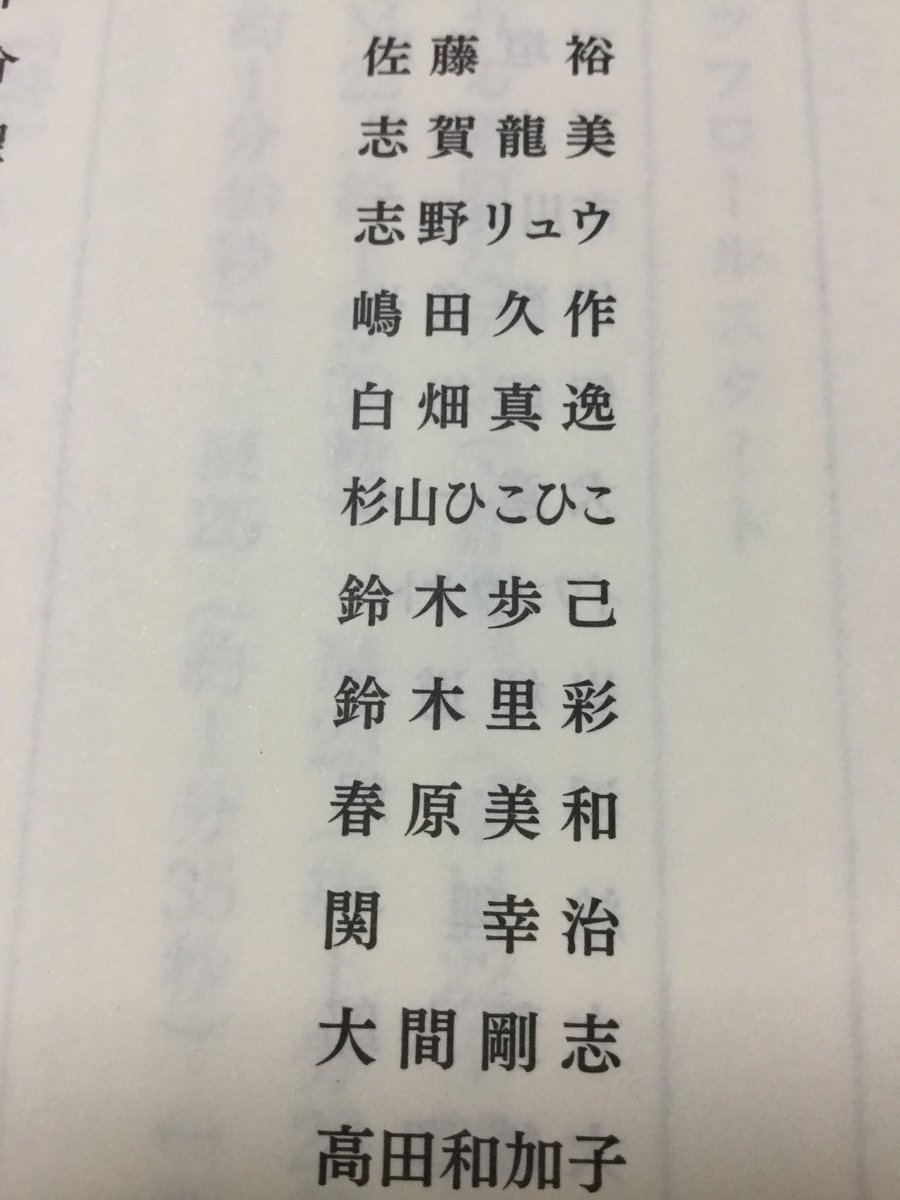 佐藤 裕
志賀龍美
志野リュウ
嶋田久作
白畑真逸
杉山ひこひこ
鈴木歩己
鈴木里彩
春原美和
関 幸治
大間剛志
高田和加子